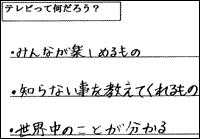 テレビって何だろう？
・みんなが楽しめるもの
・知らない事を教えてくれるもの
・世界中のことが分かる